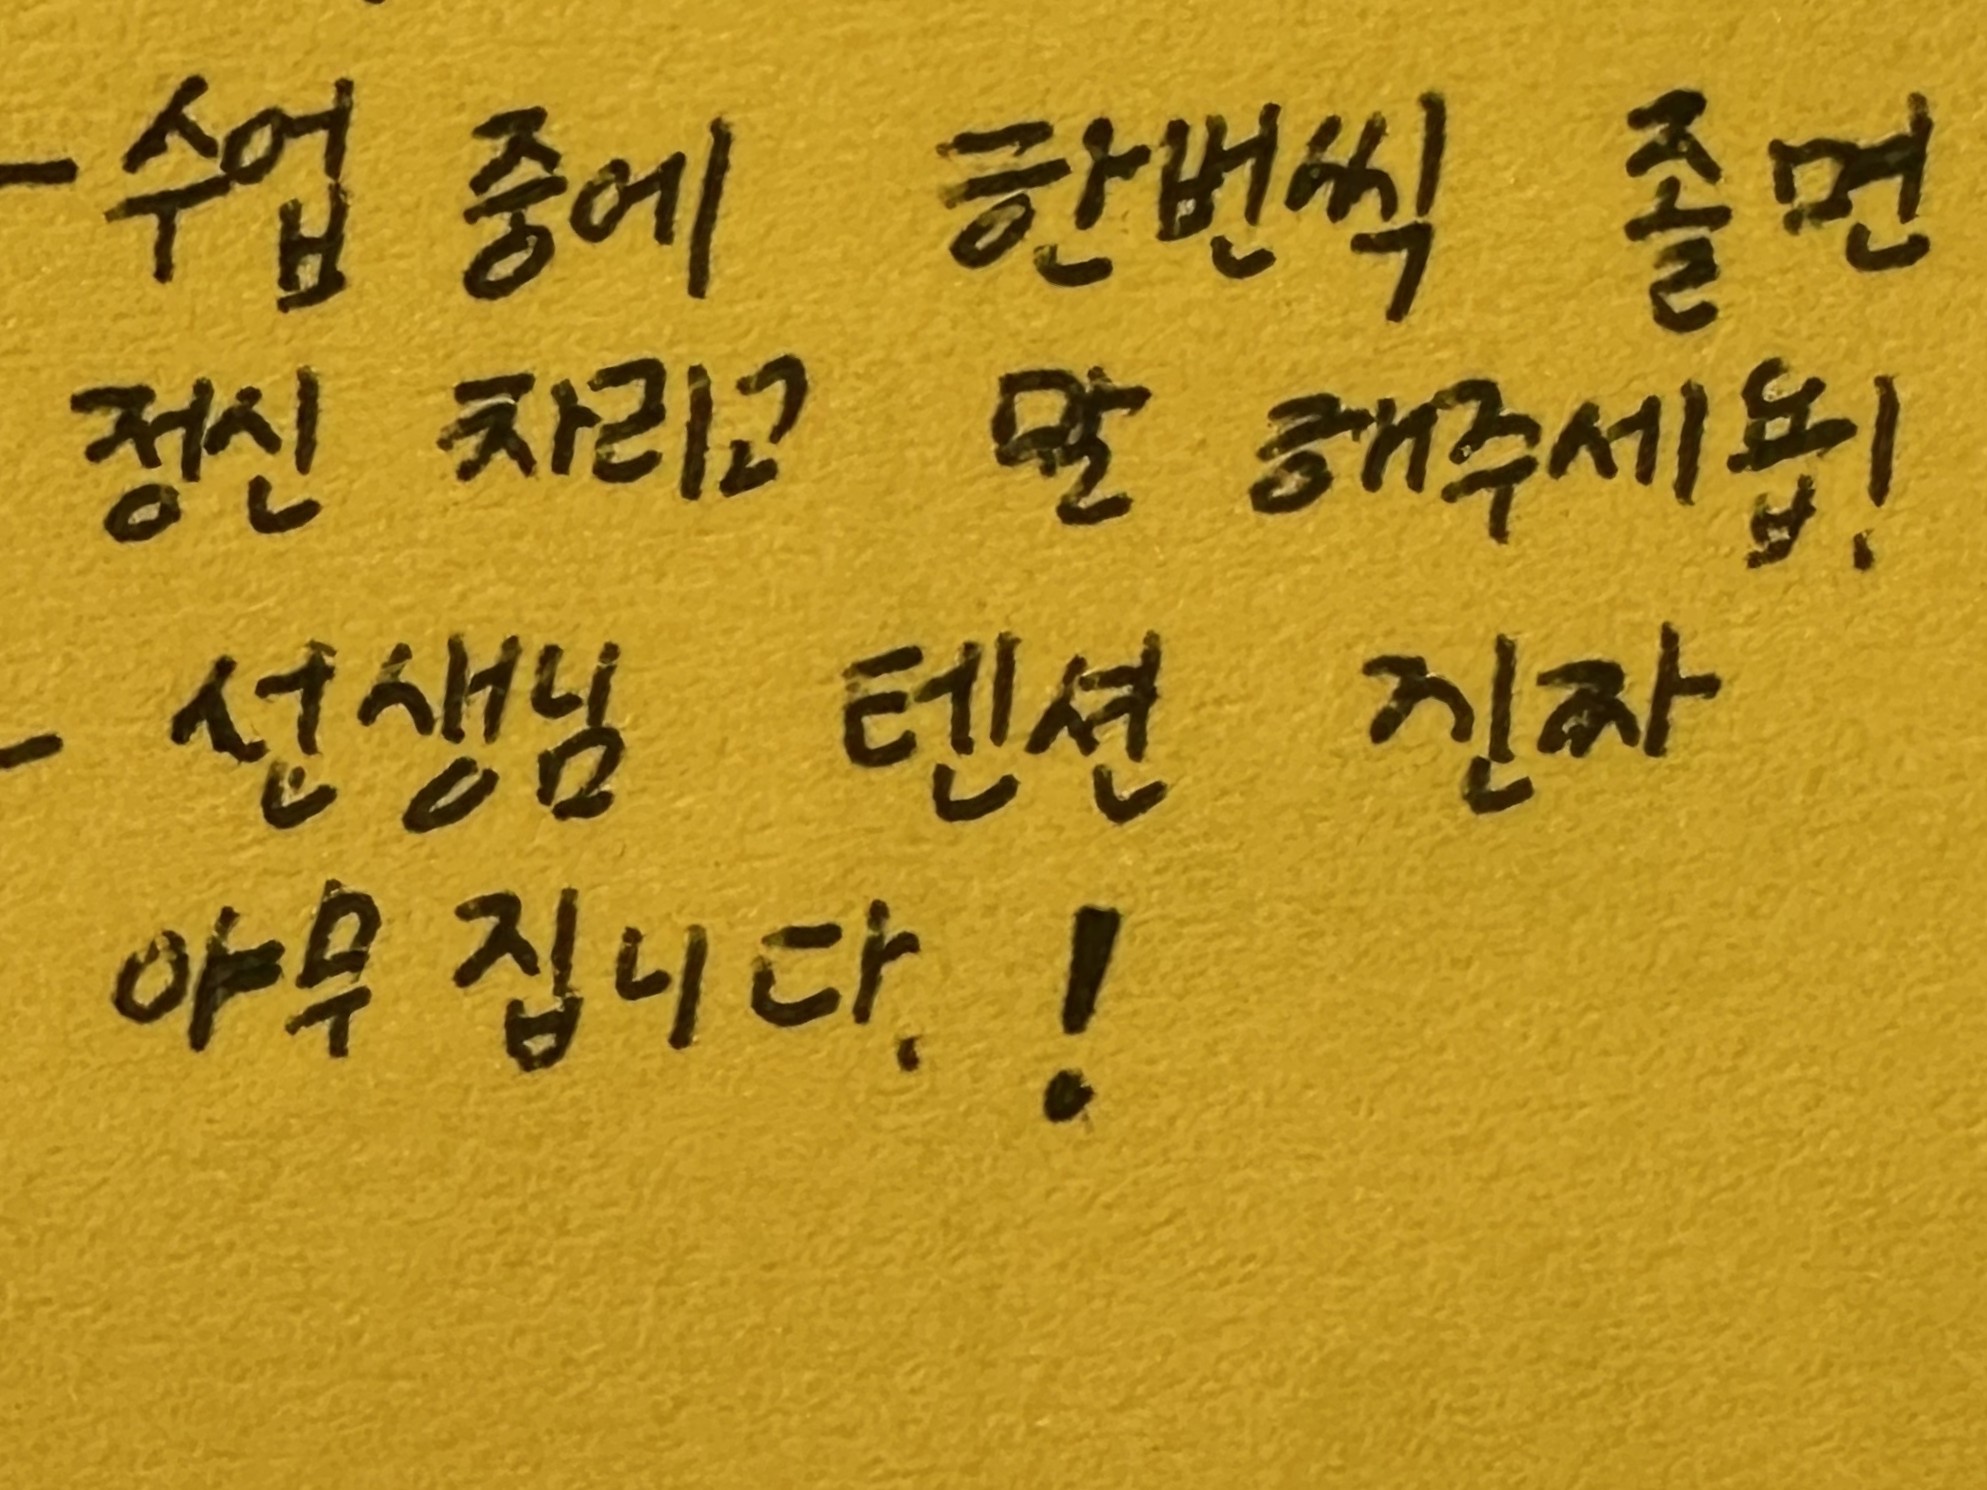 - 수업 중에 한번씩 졸면
정신 차리고 말 해주세욥!
- 선생님 텐션 진짜
야무집니다. !